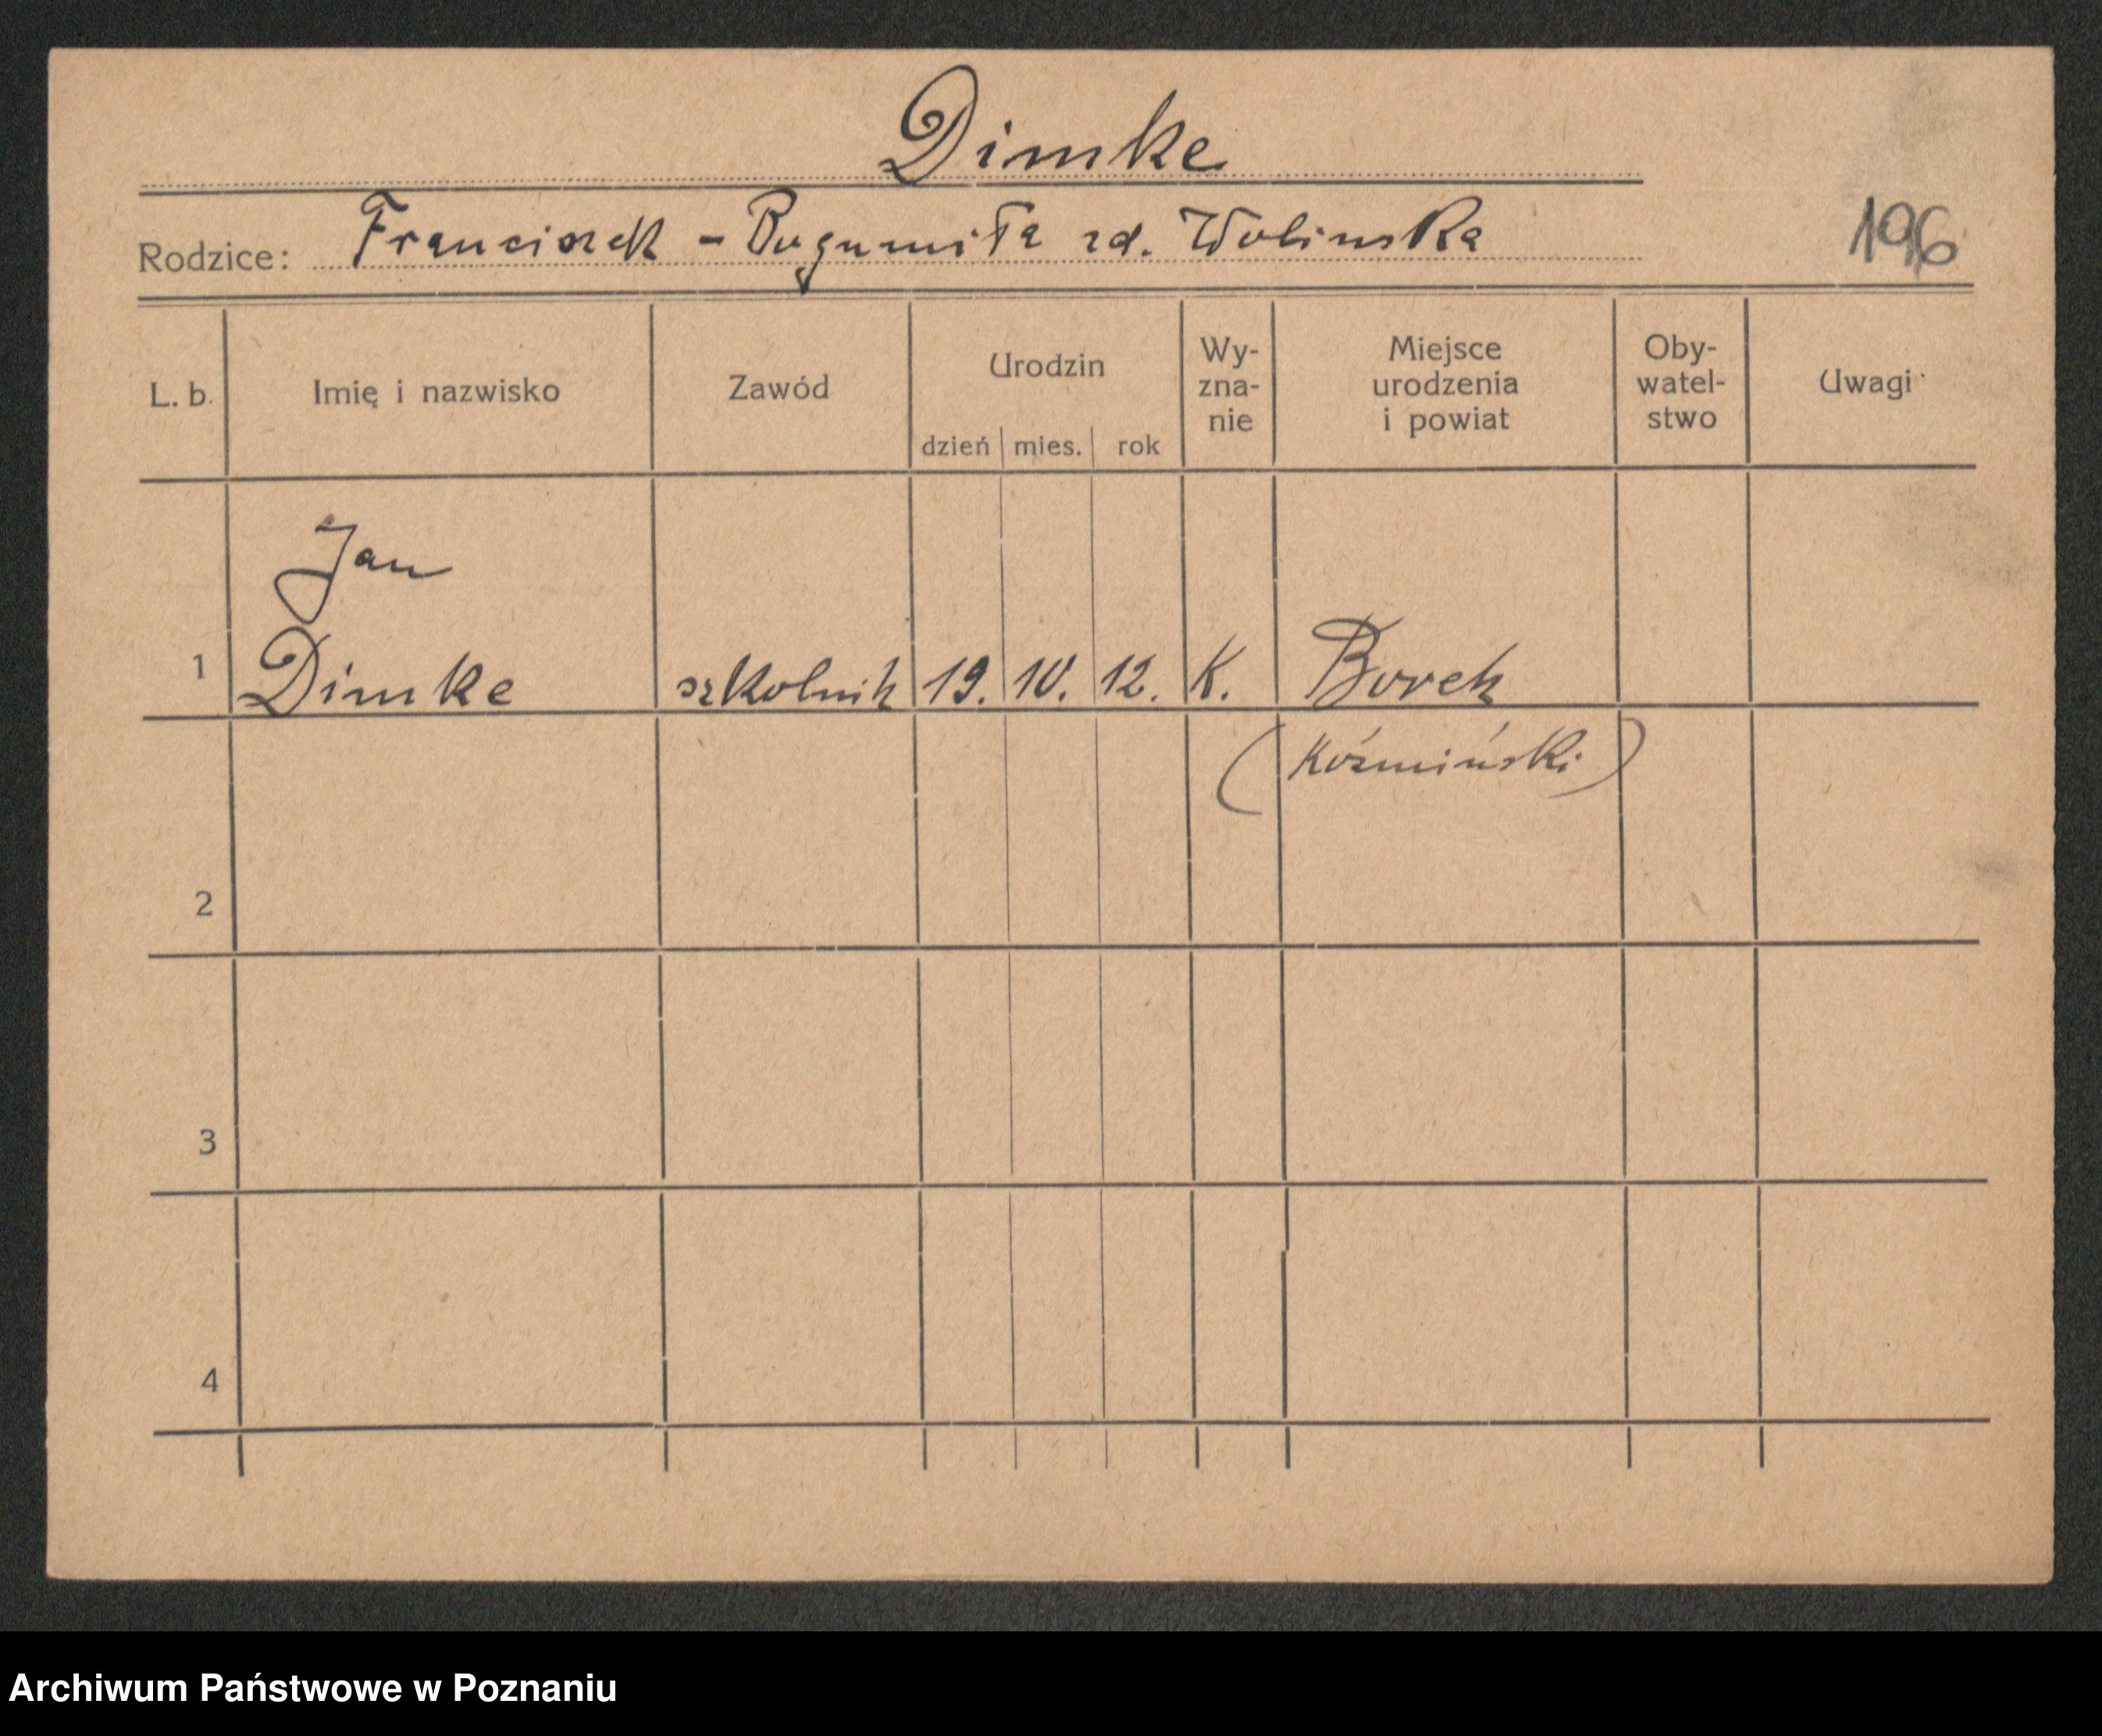 Dimke
Rodzice: Franciszek - Bogumiła zd. Wolinska
196
L. b. Imię i nazwisko Zawód Urodzin Wy- Miejsce Oby- Uwagi
zna- urodzenia watel-
nie i powiat stwo
dzień mies. rok
Jan
1 Dimke szkolnik 19. 10. 12. K. Borek
(Koźmiński)
2
3
4
Archiwum Państwowe w Poznaniu